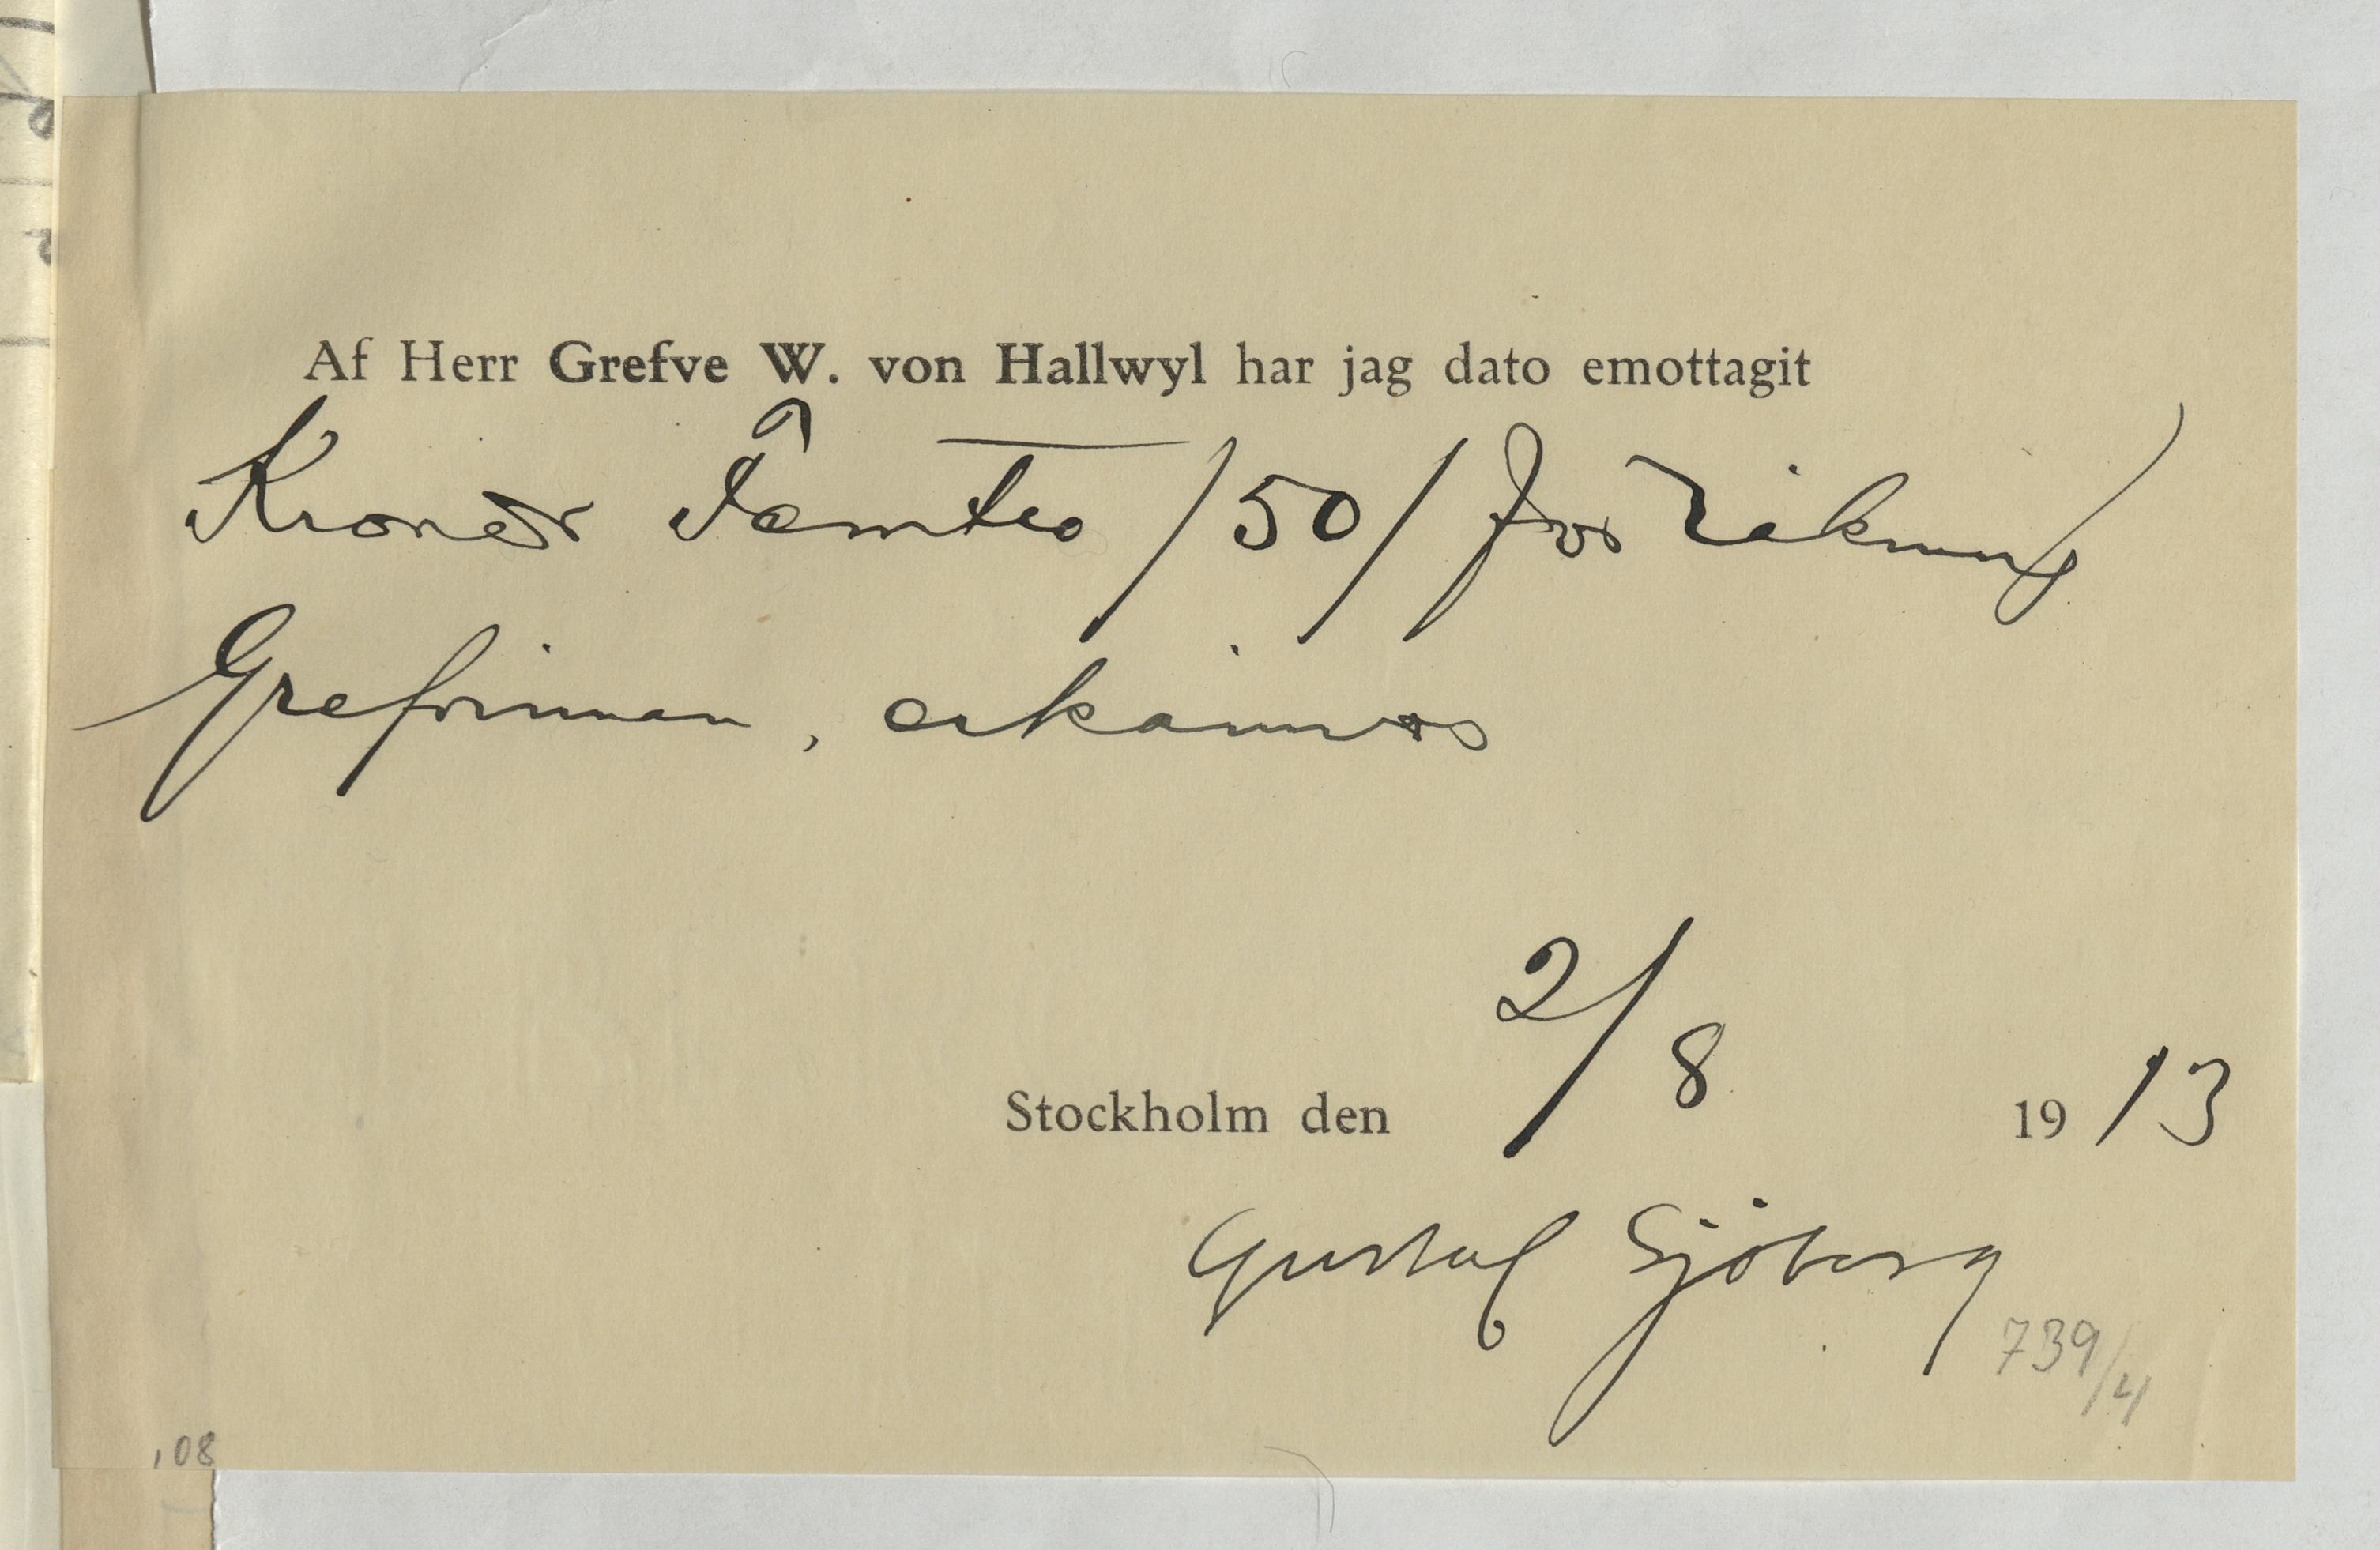 Af Herr Grefve W. von Hallwyl har jag dato emottagit
Kronor Femtio /50/ för räkning
Grefvinnan, erkännes
2/8
Stockholm den 1913
Gustaf Sjöberg
739/4
,08